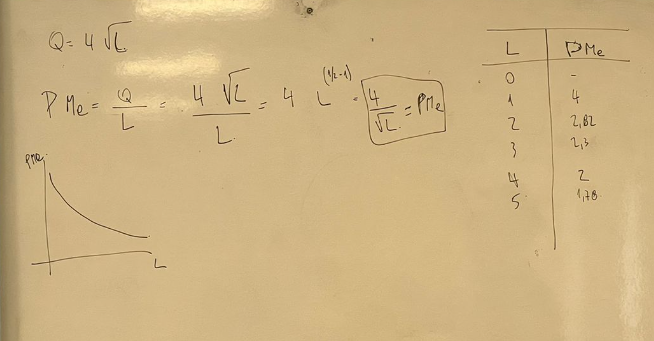 Q= 4 √L
PMe = Q/L = 4 √L/L = 4 L^(1/2-1) = 4/√L = PMe
PMe
L
L PMe
0 -
1 4
2 2,82
3 2,3
4 2
5 1,78